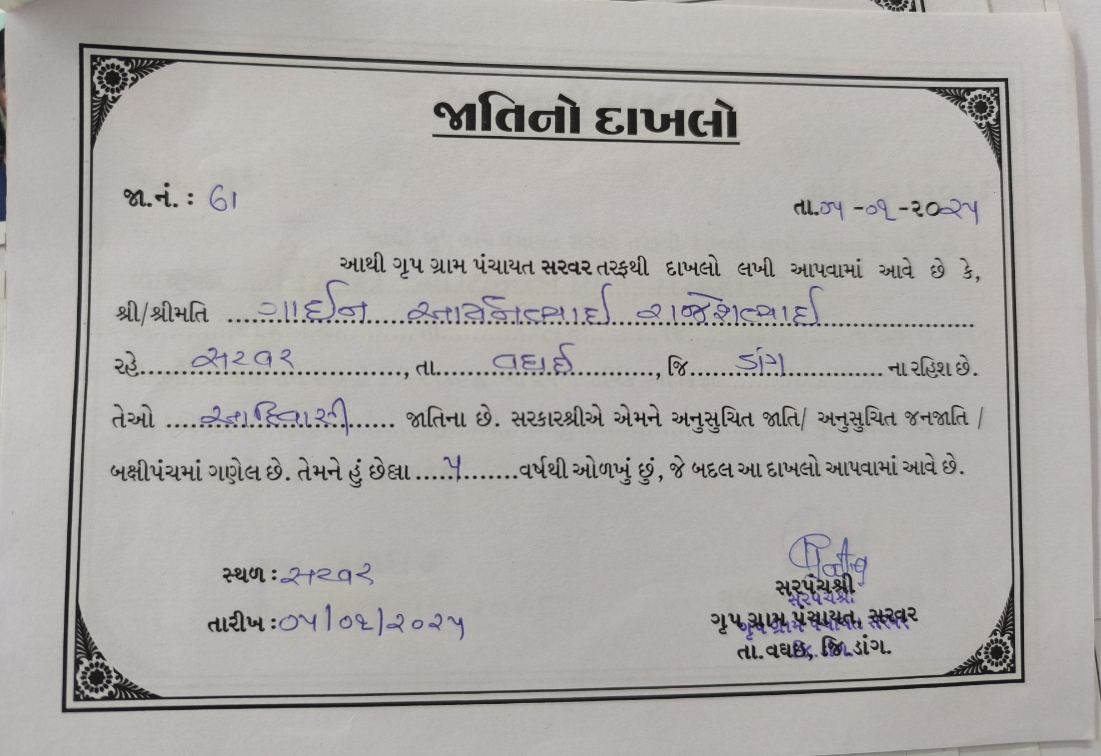 જાતિનો દાખલો
જા.નં. : 61
તા.૦૫-૦૧-૨૦૨૫
આથી ગૃપ ગ્રામ પંચાયત સરવર તરફથી દાખલો લખી આપવામાં આવે છે કે,
શ્રી/શ્રીમતિ ગાઈન આર્યનભાઈ રાજેશભાઈ
રહે. સરવર, તા. વઘઈ, જિ. ડાંગ ના રહિશ છે.
તેઓ આદિવાસી જાતિના છે. સરકારશ્રીએ એમને અનુસુચિત જાતિ/ અનુસુચિત જનજાતિ /
બક્ષીપંચમાં ગણેલ છે. તેમને હું છેલ્લા ૫ વર્ષથી ઓળખું છું, જે બદલ આ દાખલો આપવામાં આવે છે.
સ્થળ : સરવર
તારીખ : ૦૫/૦૧/૨૦૨૫
સરપંચશ્રી
સરપંચશ્રી
ગૃપ ગ્રામ પંચાયત, સરવર
ગૃપ ગ્રામ પંચાયત સરવર
તા. વઘઇ, જિ. ડાંગ.